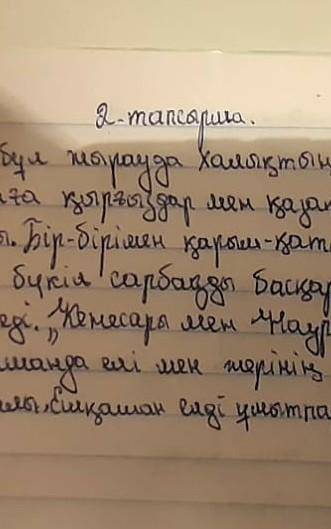 2-тапсырма.
бұл жырауда халықтың
қырғыздар мен қазақ
Бір-бірімен қарым-қат
бүкіл сарбазды басқар
еді. "Кенесары мен Наур
манда елі мен жерінің
Ешқашан елді ұмытпа